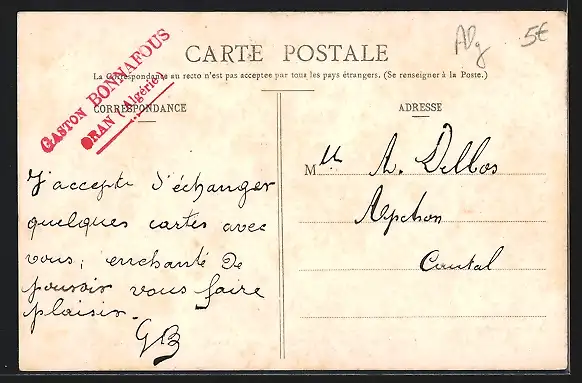 Alg 5€
GASTON BONNAFOUS
ORAN (Algérie)
CARTE POSTALE
La Correspondance au recto n'est pas acceptée par tous les pays étrangers. (Se renseigner à la Poste.)
CORRESPONDANCE
ADRESSE
J'accepte d'échanger
quelques cartes avec
vous; enchanté de
pouvoir vous faire
plaisir.
GB
Mlle A. Delbos
Alpchon
Cantal